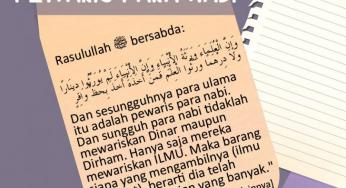 Rasulullah ﷺ bersabda:
وَإِنَّ الْعُلَمَاءَ وَرَثَةُ الْأَنْبِيَاءِ وَإِنَّ الْأَنْبِيَاءَ لَمْ يُوَرِّثُوا دِينَارًا
وَلَا دِرْهَمًا وَرَّثُوا الْعِلْمَ فَمَنْ أَخَذَهُ أَخَذَ بِحَظٍّ وَافِرٍ
Dan sesungguhnya para ulama
itu adalah pewaris para nabi.
Dan sungguh para nabi tidaklah
mewariskan Dinar maupun
Dirham. Hanya saja mereka
mewariskan ILMU. Maka barang
siapa yang mengambilnya (ilmu
berarti dia telah
yang banyak."